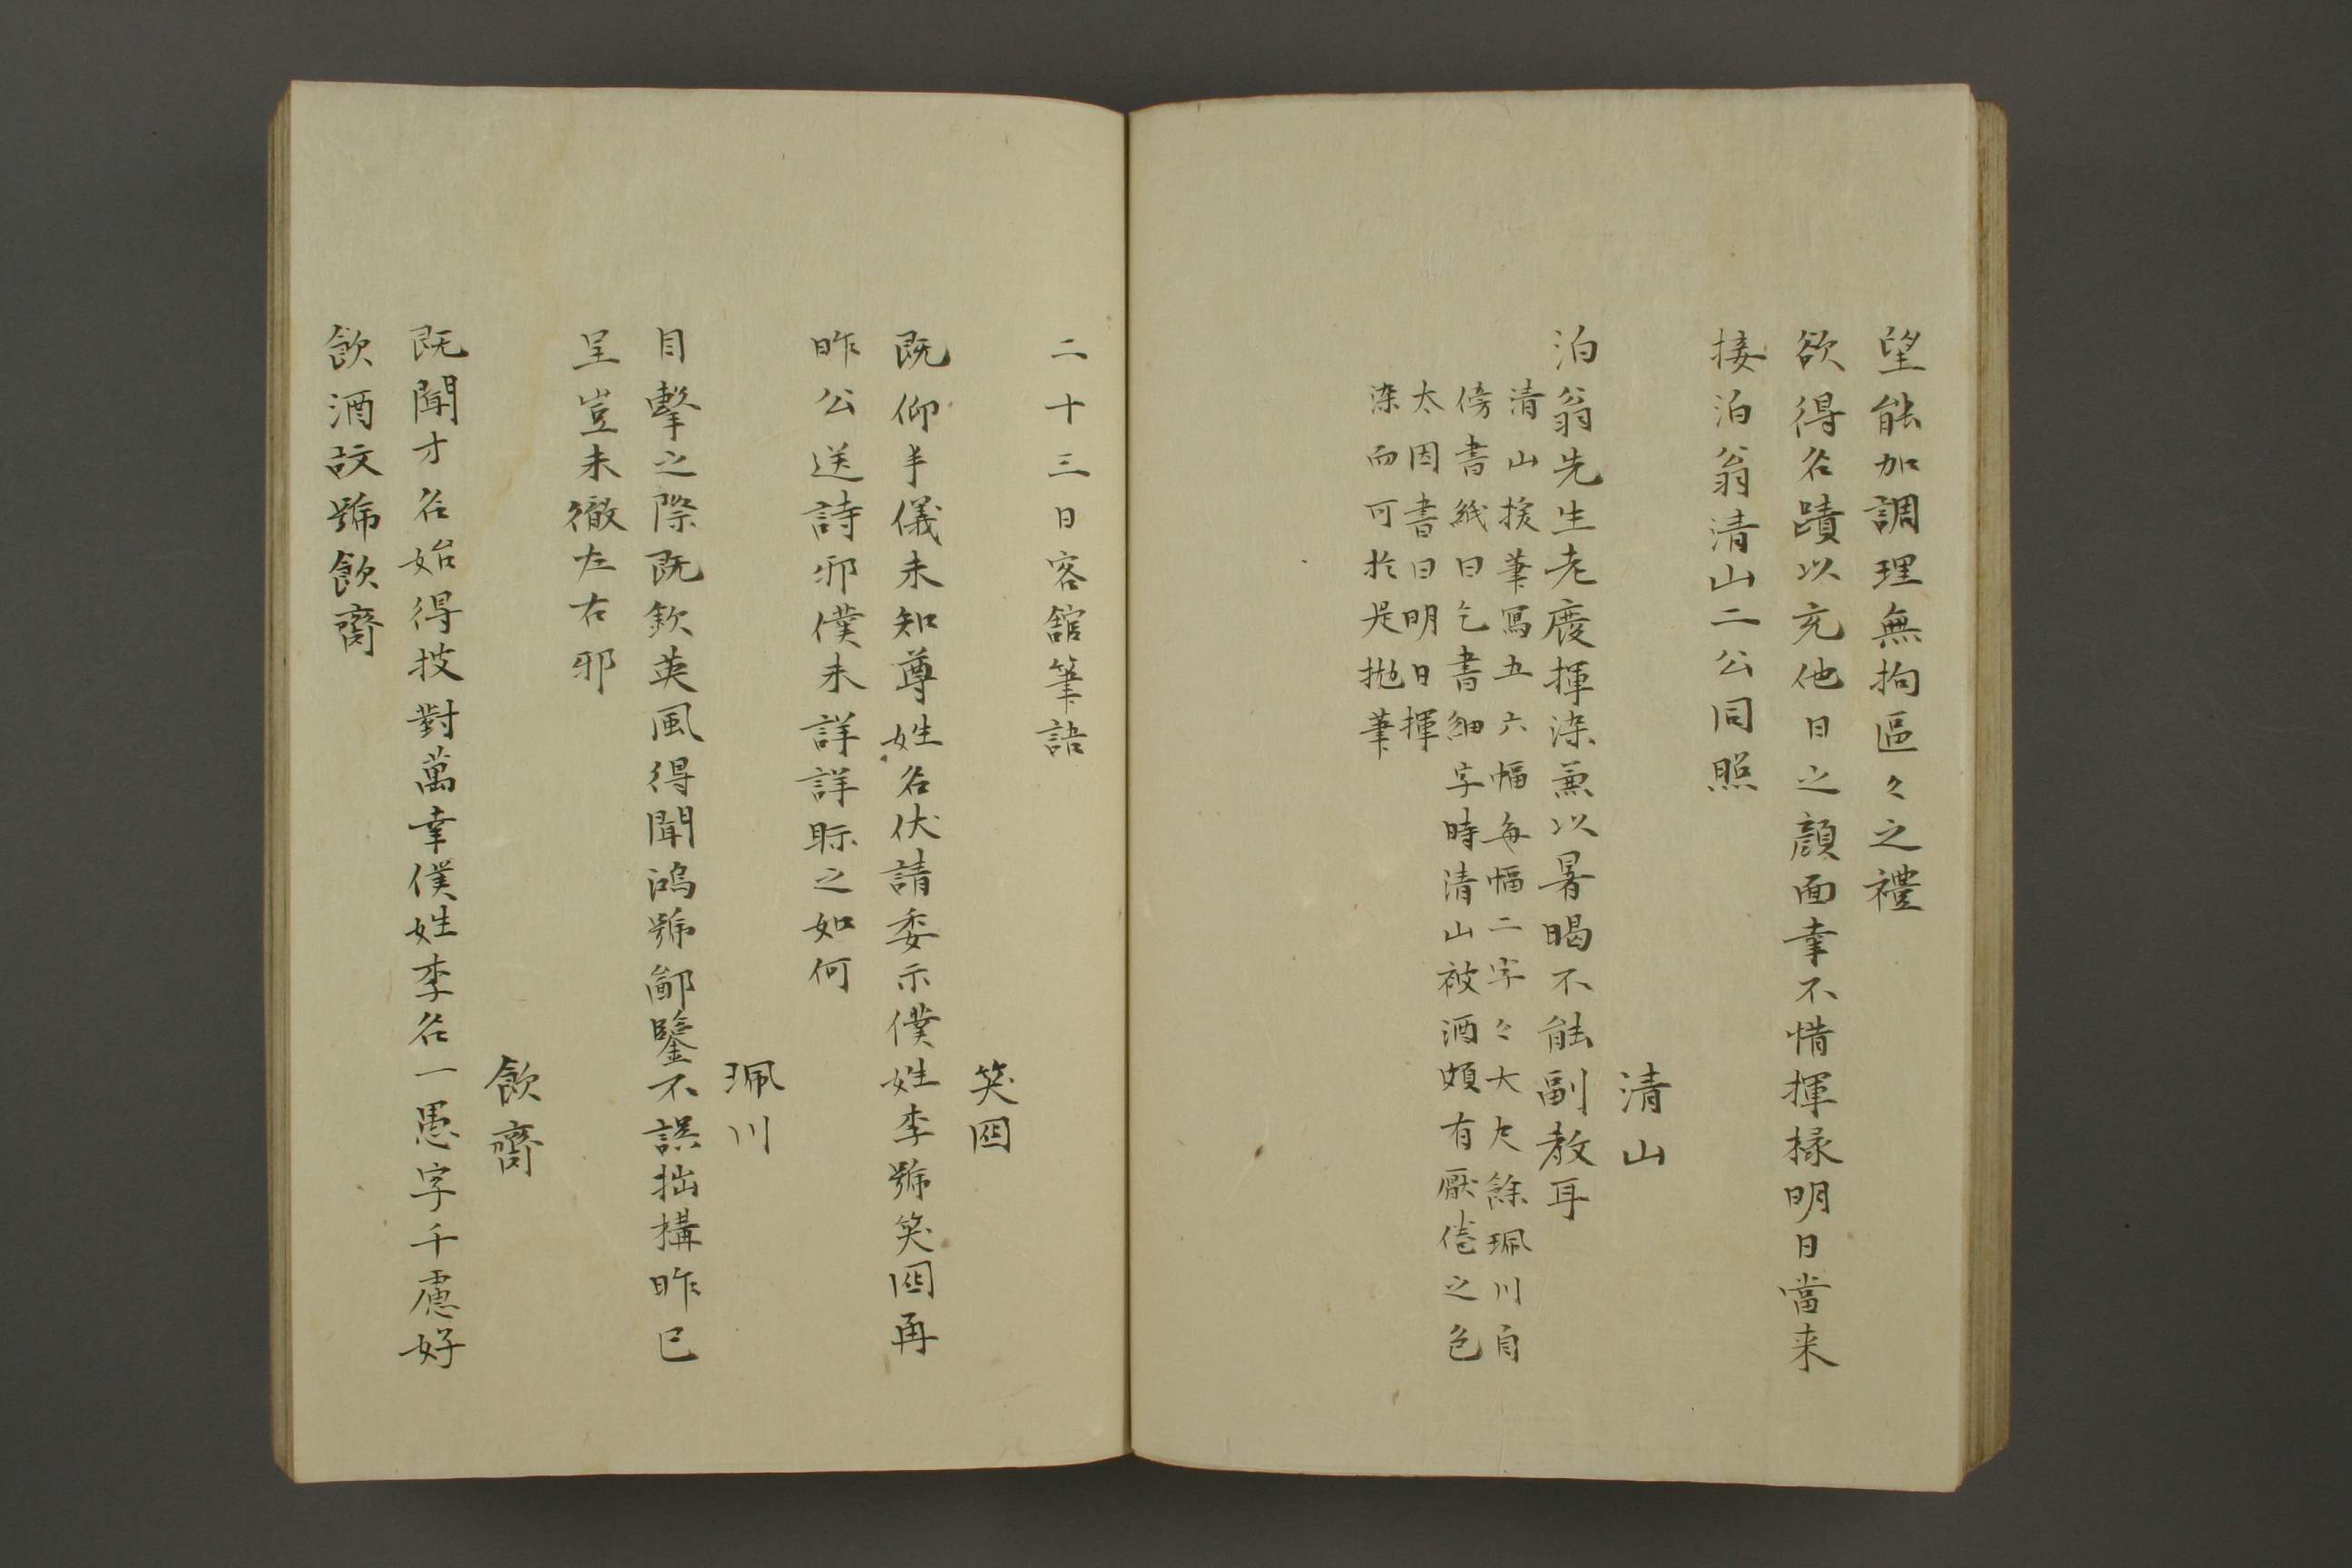 望能加調理無拘區々之禮
欲得名蹟以充他日之顔面幸不惜揮掾明日當来
接泊翁清山二公同照
清山
泊翁先生老度揮染兼以暑暍不能副教耳
清山援筆寫五六幅每幅二字々大尺餘珮川自
傍書紙曰乞書細字時清山被酒頗有厭倦之色
太因書曰明日揮
染而可於是拋筆
二十三日客舘筆語
笑囮
既仰丰儀未知尊姓名伏請委示僕姓李號笑囮再
昨公送詩邪僕未詳詳眎之如何
珮川
目擊之際既欽英風得聞鴻號鄙鑒不誤拙構昨已
呈豈未徹左右邪
飲齋
既聞才名始得披對萬幸僕姓李名一愚字千慮好
飲酒故號飲齋